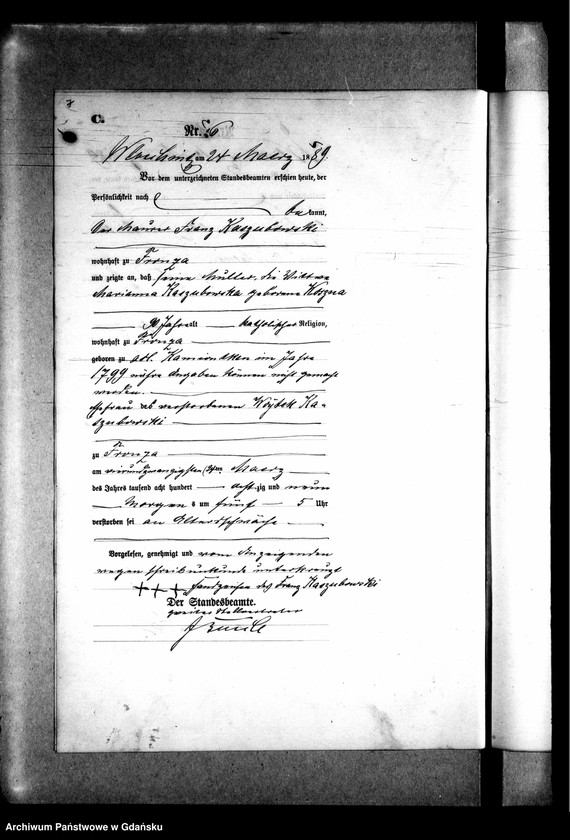 7
C.
Nr. 26
am 24 Maerz 1889.
Vor dem unterzeichneten Standesbeamten erschien heute, der
Persönlichkeit nach
bekannt,
der Maurer Franz Kaszubowski
wohnhaft zu Fronza
und zeigte an, daß seine Mutter, die Wittwe
Marianna Kaszubowska geborene
90 Jahre alt katholischer Religion,
wohnhaft zu Fronza
geboren zu adl. Kamionken im Jahre
1799 nähere Angaben können nicht gemacht
werden.
Ehefrau des verstorbenen Ka-
szubowski
zu Fronza
am vierundzwanzigsten Maerz
des Jahres tausend acht hundert achtzig und neun
Morgens um fünf 5 Uhr
verstorben sei an Altersschwäche
Vorgelesen, genehmigt und vom Anzeigenden
wegen Schreibunkunde unterkreuzt
+++ Handzeichen des Franz Kaszubowski
Der Standesbeamte.
zweiter Stellvertreter
Archiwum Państwowe w Gdańsku